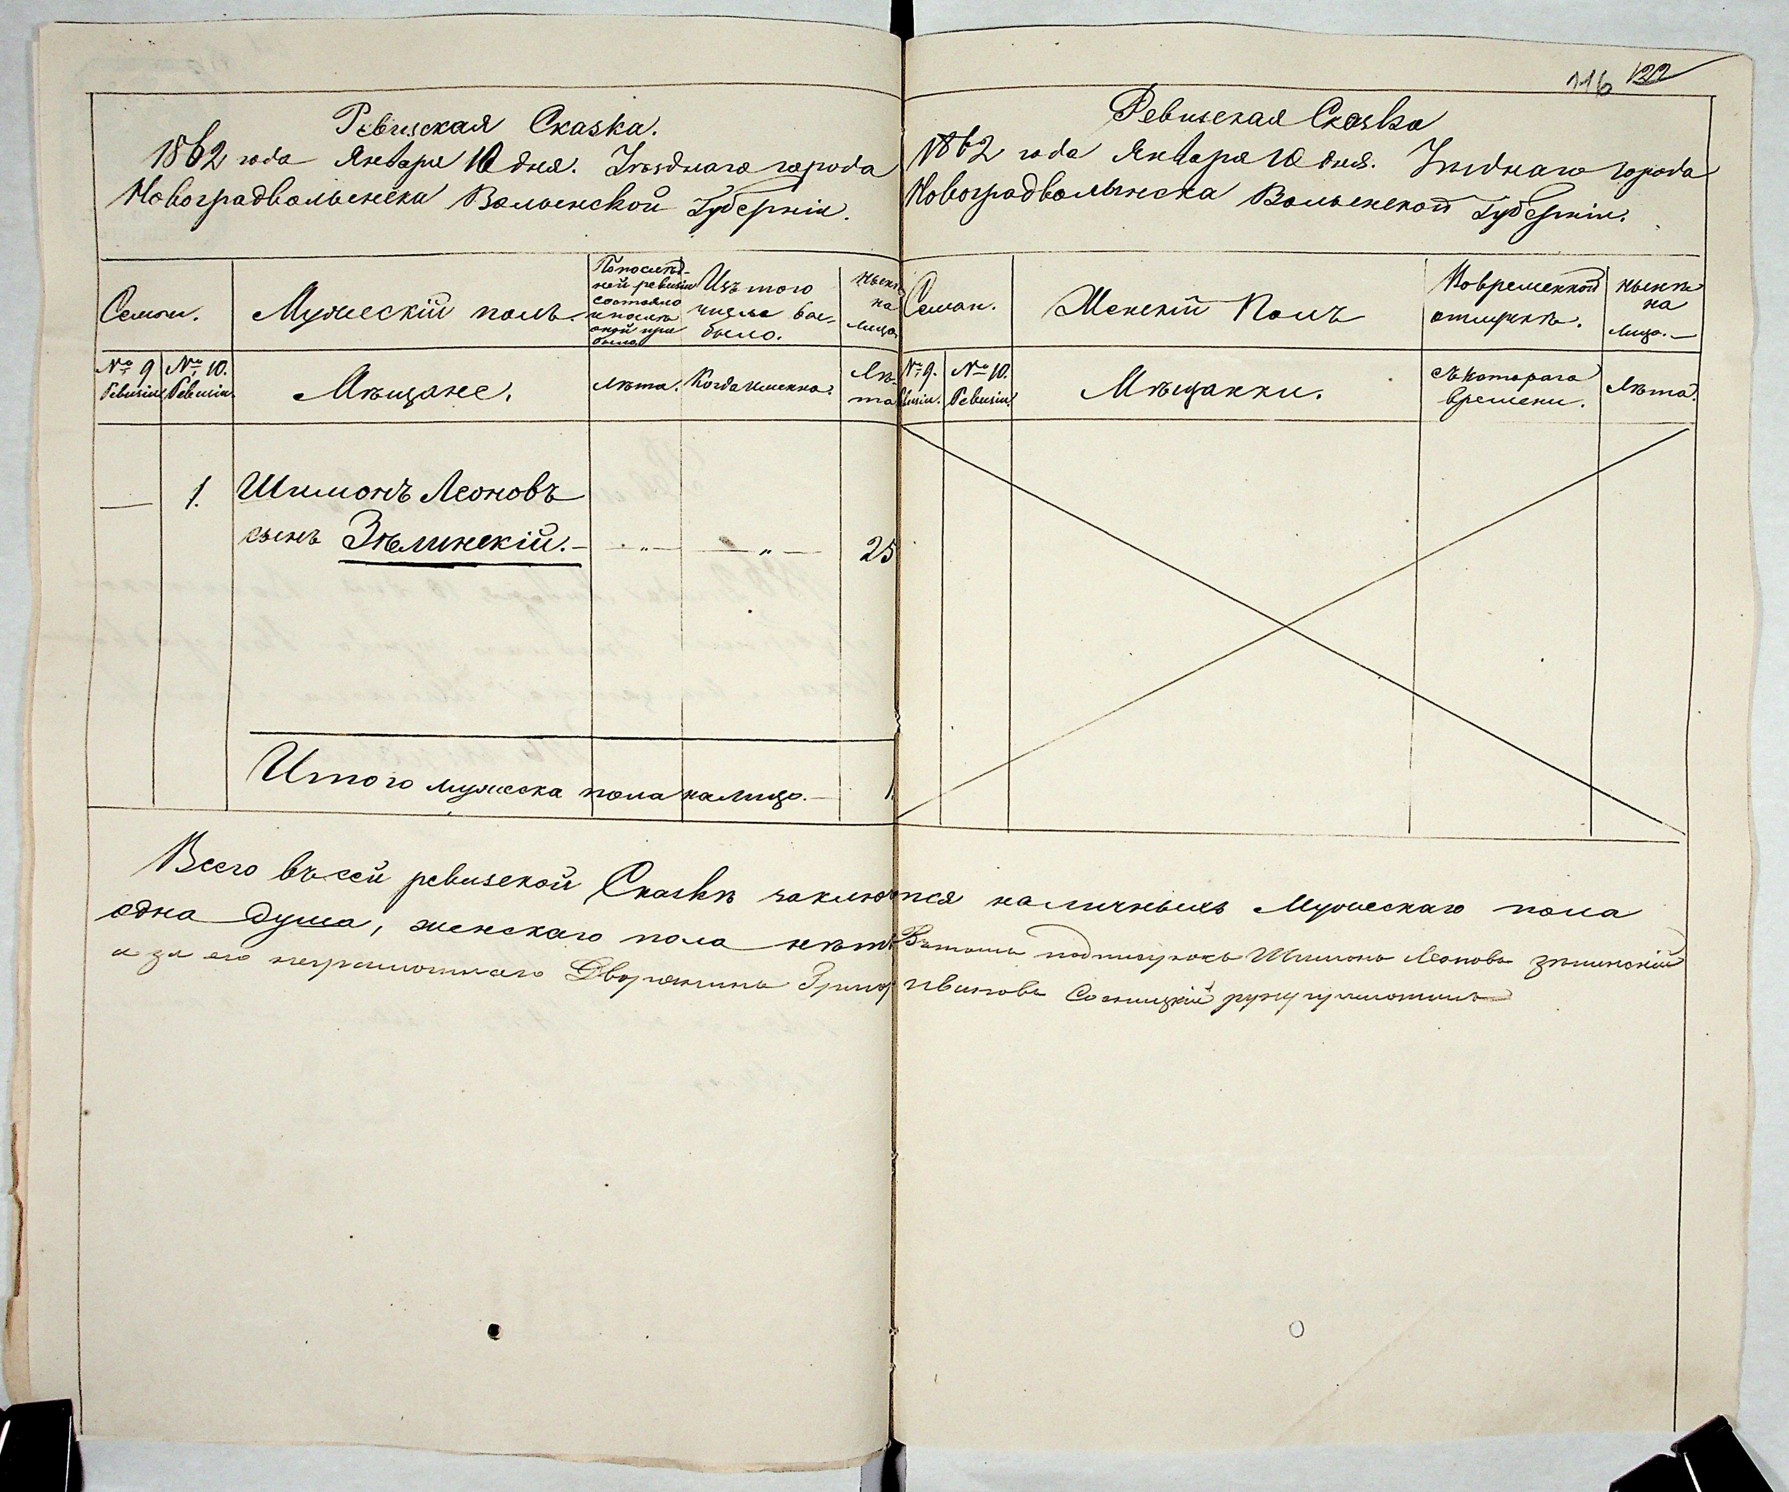 Ревизская Сказка.
1862 года Января 10 дня. Уѣзднаго города
Новоградволынска Волынской Губерніи.
Семьи.
Мужескій полъ.
По послѣд-
ней ревизіи
состояло
и послѣ
оной при
было.
Изъ того
числа вы-
было.
Нынѣ
на
лицо.
№ 9
Ревизіи
№ 10.
Ревизіи.
Мѣщане.
Лѣта.
Когда именно.
Лѣ-
та
—
1.
Шимонъ Леоновъ
сынъ Зѣлинскій. — — „ — — „ — 25
Итого мужеска пола на лицо. — 1.
116 122
Ревизская Сказка
1862 года Января 10 дня. Уѣзднаго города
Новоградволынска Волынской Губерніи.
Семьи.
Женскій Полъ
Во временной
отлучкѣ.
Нынѣ
на
лицо. —
№ 9.
Ревизіи.
№ 10.
Ревизіи.
Мѣщанки.
Съ котораго
времени.
Лѣта.
Всего въ сей ревизской Сказкѣ заключится наличныхъ Мужескаго пола
одна душа, женскаго пола нѣтъ. Въ томъ подписуюсь Шимонъ Леоновъ Зѣлинскій
а за его неграмотнаго Дворянинъ Григор Ивановъ Сосницкій руку приложилъ